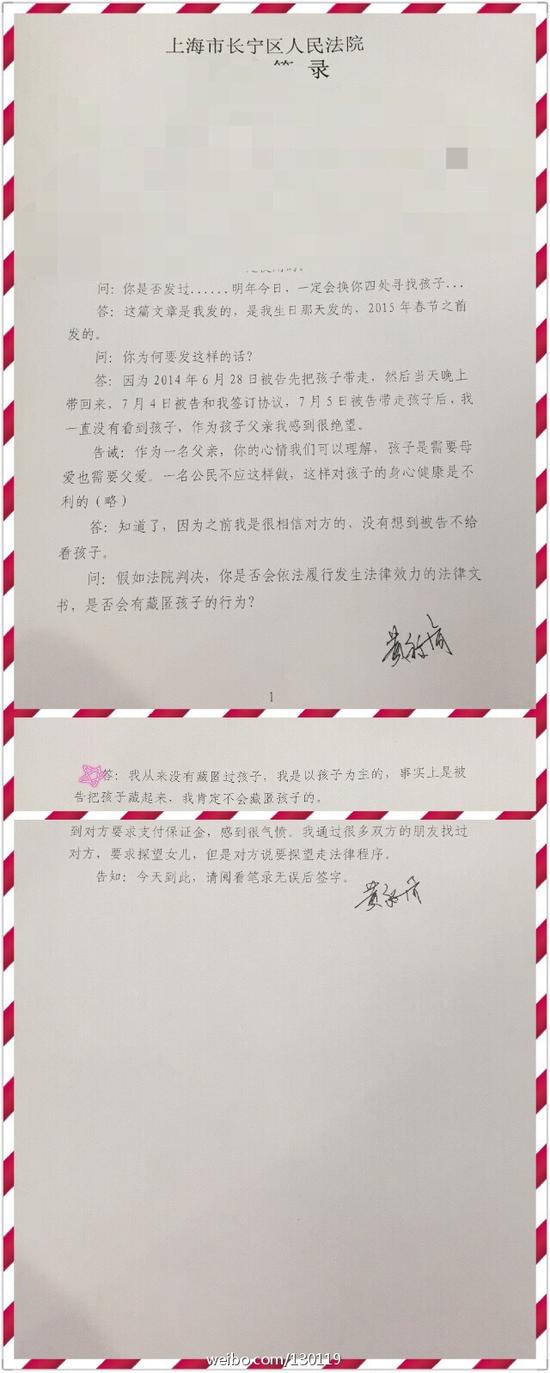 上海市长宁区人民法院
笔 录
问：你是否发过......明年今日，一定会换你四处寻找孩子...
答：这篇文章是我发的，是我生日那天发的，2015年春节之前
发的。
问：你为何要发这样的话？
答：因为2014年6月28日被告先把孩子带走，然后当天晚上
带回来，7月4日被告和我签订协议，7月5日被告带走孩子后，我
一直没有看到孩子，作为孩子父亲我感到很绝望。
告诫：作为一名父亲，你的心情我们可以理解，孩子是需要母
爱也需要父爱。一名公民不应这样做，这样对孩子的身心健康是不
利的（略）
答：知道了，因为之前我是很相信对方的，没有想到被告不给
看孩子。
问：假如法院判决，你是否会依法履行发生法律效力的法律文
书，是否会有藏匿孩子的行为？
1
答：我从来没有藏匿过孩子，我是以孩子为主的，事实上是被
告把孩子藏起来，我肯定不会藏匿孩子的。
到对方要求支付保证金，感到很气愤。我通过很多双方的朋友找过
对方，要求探望女儿，但是对方说要探望走法律程序。
告知：今天到此，请阅看笔录无误后签字。
weibo.com/130119